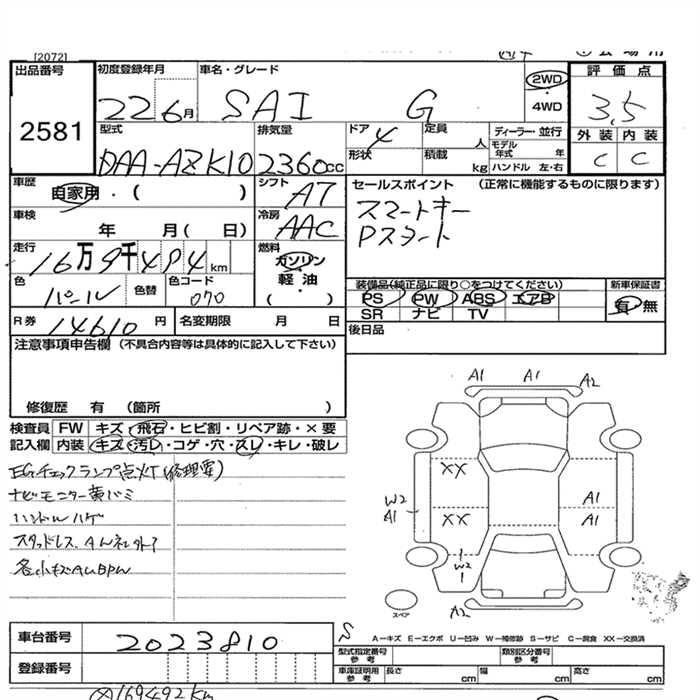 [2072]
出品番号 初度登録年月 車名・グレード 評価点
2581 22 6月 SAI G 2WD 4WD 3.5
外装 内装
C C
型式 排気量 ドア 定員 人 ディーラー・並行
DAA-AZK10 2360cc 4 モデル年式 年
形状 積載 kg ハンドル 左・右
車歴 自家用・( ) シフト AT セールスポイント (正常に機能するものに限ります)
車検 年 月( 日) 冷房 AAC スマートキー
Pスタート
走行 16万9千494km 燃料 ガソリン・軽油・( )
色 パール 色替 色コード 070
装備品(純正品に限り○をつけてください) 新車保証書
PS PW ABS エアB 有・無
SR ナビ TV
R券 14610円 名変期限 月 日 後日品
注意事項申告欄 (不具合内容等は具体的に記入して下さい)
修復歴 有 (箇所 )
検査員記入欄 FW キズ・飛石・ヒビ割・リペア跡・×要
内装 キズ・汚レ・コゲ・穴・スレ・キレ・破レ
EGチェックランプ点灯(修理要)
ナビモニター黄バミ
ハンドルハゲ
スタッドレス、
各小キズAUBPW
A1 A1 A2
XX A1
W2 A1 XX A1
W2 1
A2
スペア
S
A-キズ E-エクボ U-凹み W-補修跡 S-サビ C-腐食 XX-交換済
車台番号 2023810
型式指定番号 参考 類別区分番号 参考
登録番号
車庫証明用 参考 長さ cm 幅 cm 高さ cm
169492km